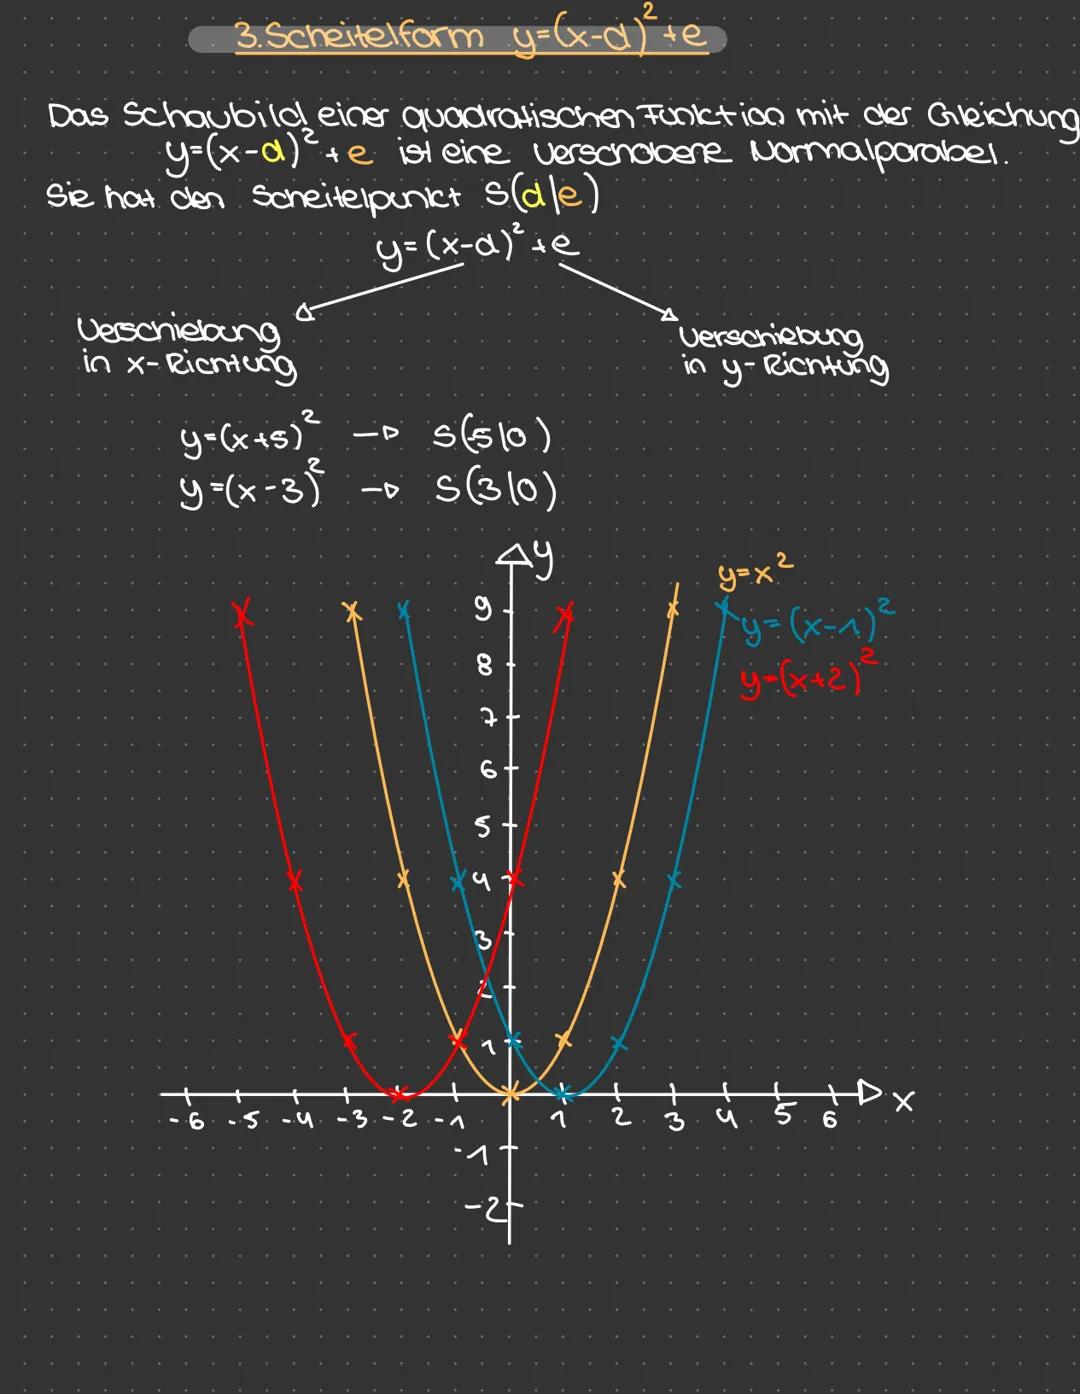 3. Scheitelform y=(x-d)²+e
Das Schaubild einer quadratischen Funktion mit der Gleichung
y=(x-d)²+e ist eine verschobene Normalparabel.
Sie hat den Scheitelpunkt S(d|e)
y=(x-d)²+e
Verschiebung
in x-Richtung
Verschiebung
in y-Richtung
y=(x+5)² → S(-5|0)
y=(x-3)² → S(3|0)
y
y=x²
y=(x-1)²
y=(x+2)²
9
8
7
6
5
4
3
2
1
-6 -5 -4 -3 -2 -1 1 2 3 4 5 6 x
-1
-2